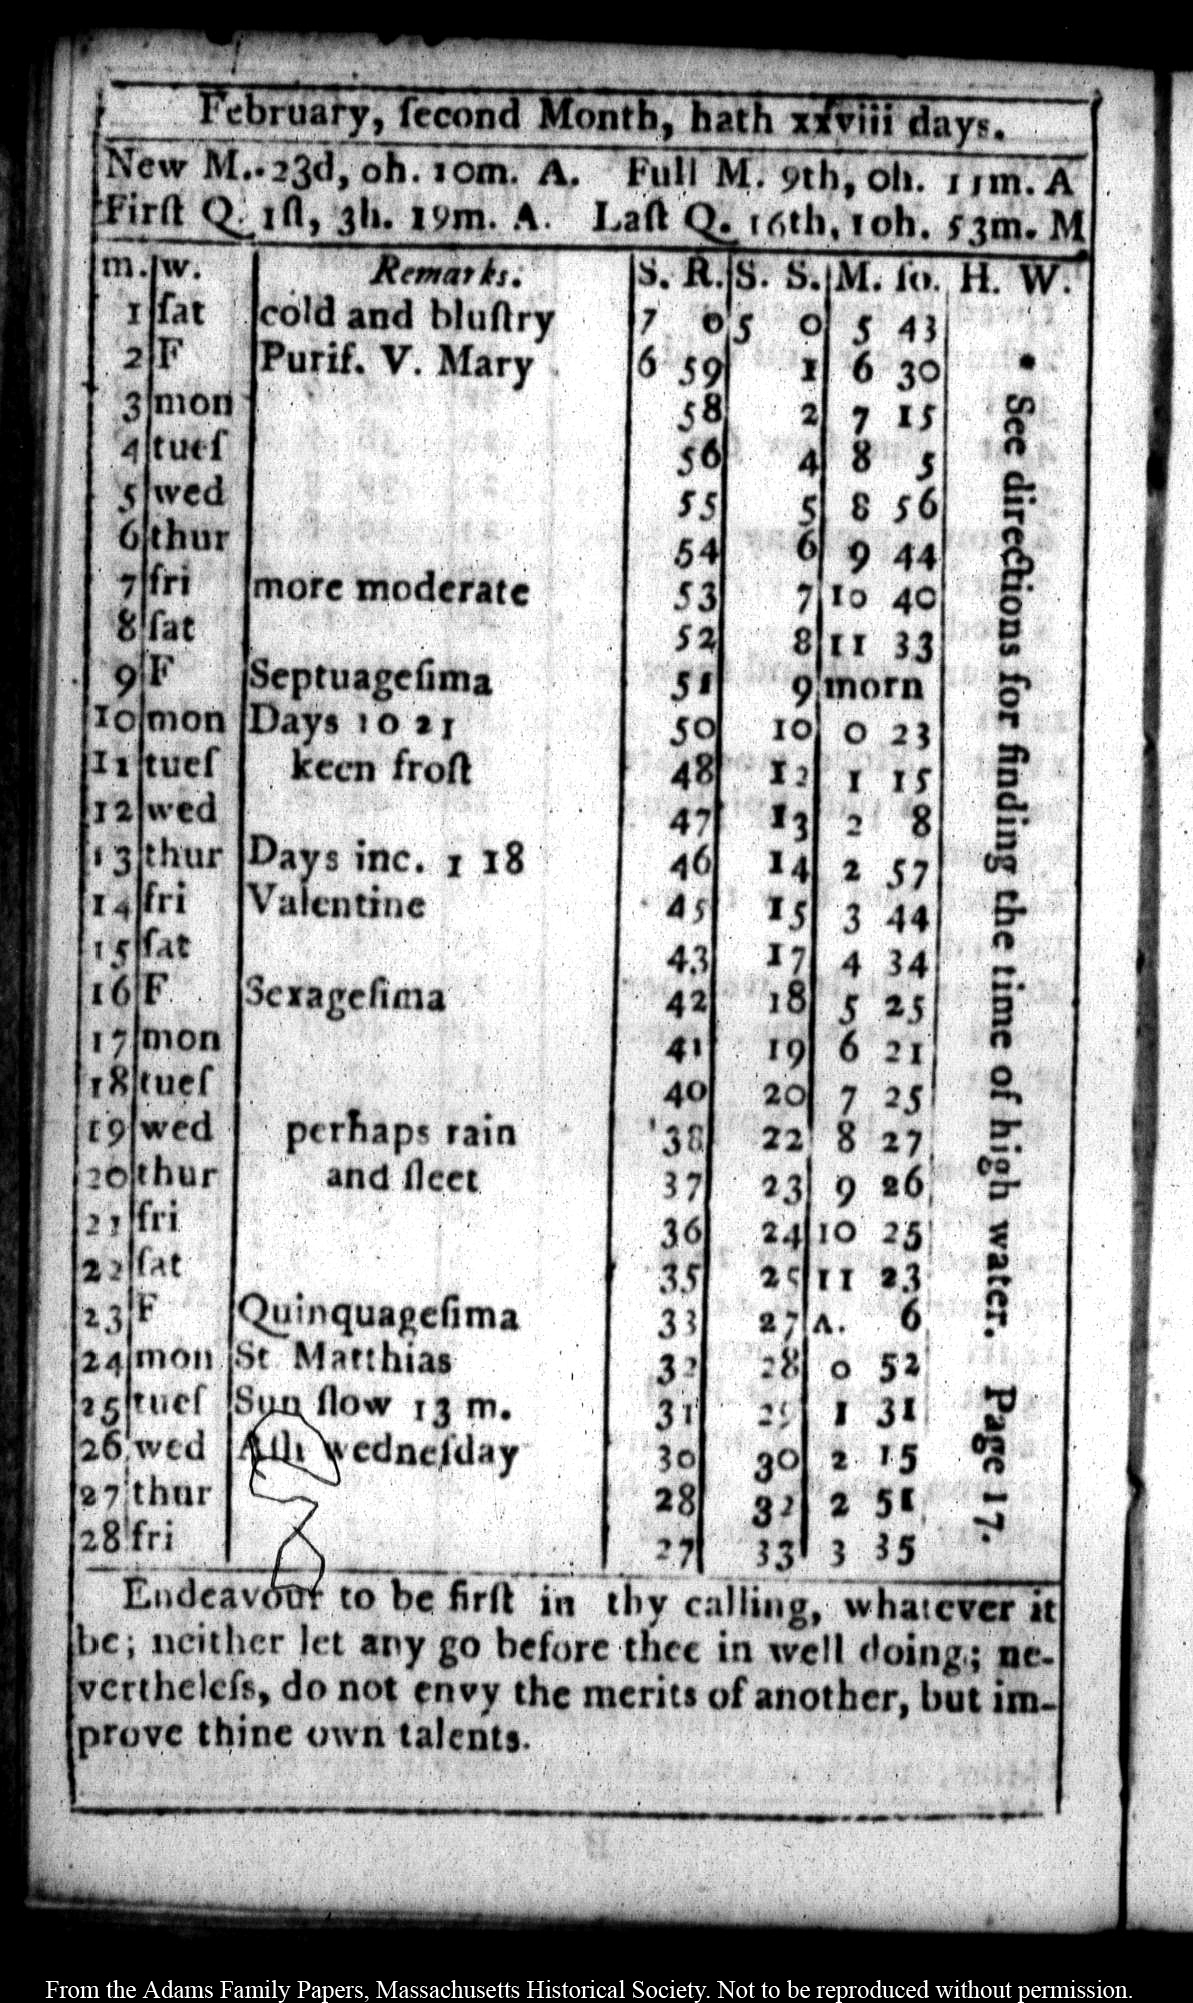 February, ſecond Month, hath xxviii days.
New M. 23d, 0h. 10m. A. Full M. 9th, 0h. 11m. A
Firſt Q. 1ſt, 3h. 19m. A. Laſt Q. 16th, 10h. 53m. M
m. w. Remarks. S. R. S. S. M. ſo. H. W.
1 ſat cold and bluſtry 7 0 5 0 5 43
2 F Purif. V. Mary 6 59 1 6 30
3 mon 58 2 7 15
4 tueſ 56 4 8 5
5 wed 55 5 8 56
6 thur 54 6 9 44
7 fri more moderate 53 7 10 40
8 ſat 52 8 11 33
9 F Septuageſima 51 9 morn
10 mon Days 10 21 50 10 0 23
11 tueſ keen froſt 48 12 1 15
12 wed 47 13 2 8
13 thur Days inc. 1 18 46 14 2 57
14 fri Valentine 45 15 3 44
15 ſat 43 17 4 34
16 F Sexageſima 42 18 5 25
17 mon 41 19 6 21
18 tueſ 40 20 7 25
19 wed perhaps rain 38 22 8 27
20 thur and ſleet 37 23 9 26
21 fri 36 24 10 25
22 ſat 35 25 11 23
23 F Quinquageſima 33 27 A. 6
24 mon St Matthias 32 28 0 52
25 tueſ Sun ſlow 13 m. 31 29 1 31
26 wed Aſh wedneſday 30 30 2 15
27 thur 28 32 2 51
28 fri 27 33 3 35
* See directions for finding the time of high water. Page 17.
Endeavour to be firſt in thy calling, whatever it
be; neither let any go before thee in well doing; ne-
vertheleſs, do not envy the merits of another, but im-
prove thine own talents.
From the Adams Family Papers, Massachusetts Historical Society. Not to be reproduced without permission.